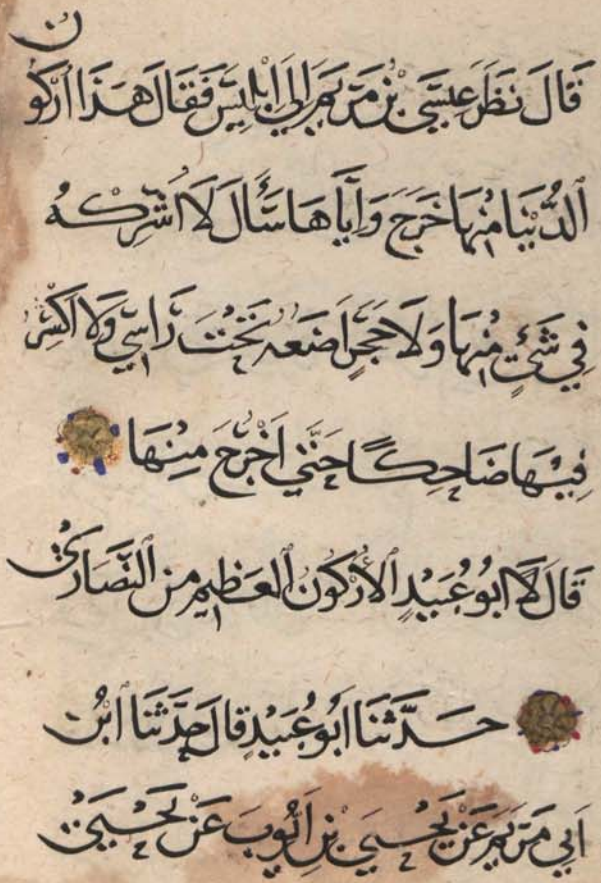 قَالَ نَظَرَ عِيسَى بْنُ مَرْيَمَ إِلَى ابْلِيسَ فَقَالَ هَذَا أَرْكُون
ٱلدُّنْيَا مِنْهَا خَرَجَ وَإِيَّاهَا سَأَلَ لَا اشْرِكُهُ
فِي شَيْءٍ مِنْهَا وَلَا حَجَرٍ اَضَعُهُ تَحْتَ رَاسِي وَلَا اكْشِرُ
فِيهَا ضَاحِكًا حَتَّى اخْرُجَ مِنْهَا
قَالَ لَا ابُو عُبَيْدٍ الأُرْكُونُ العَظِيمِ مِن النَّصَارَى
حَدَّثَنَا أَبُو عُبَيْدٍ قَالَ حَدَّثَنَا ابْنُ
ابِي مَرْيَمَ عَنْ يَحْيَى بْنِ ايُّوبَ عَنْ يَحْيَى